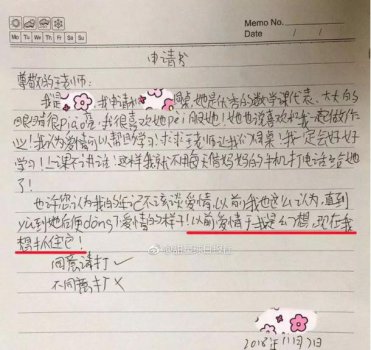 Memo No.
Mo Tu We Th Fr Sa Su
Date / /
申请书
尊敬的王老师：
我是 ，我申请和 同桌，她是优秀的数学课代表、大大的
眼睛很piāo亮，我很喜欢她pei服她！她也说喜欢和我一起做作
业！我认为爱情可以帮助学习！求求王老师让我们同桌！我一定会好好
学习！上课不讲话！这样我就不用每天借妈妈的手机打电话给她
了！
也许您认为我的年记不该谈爱情，以前我也这么认为，直到
yù到她后便dǒng了爱情的样子！以前爱情于我是幻想，现在我
想抓住它！
同意请打✓
不同意打×
2018年11月21日